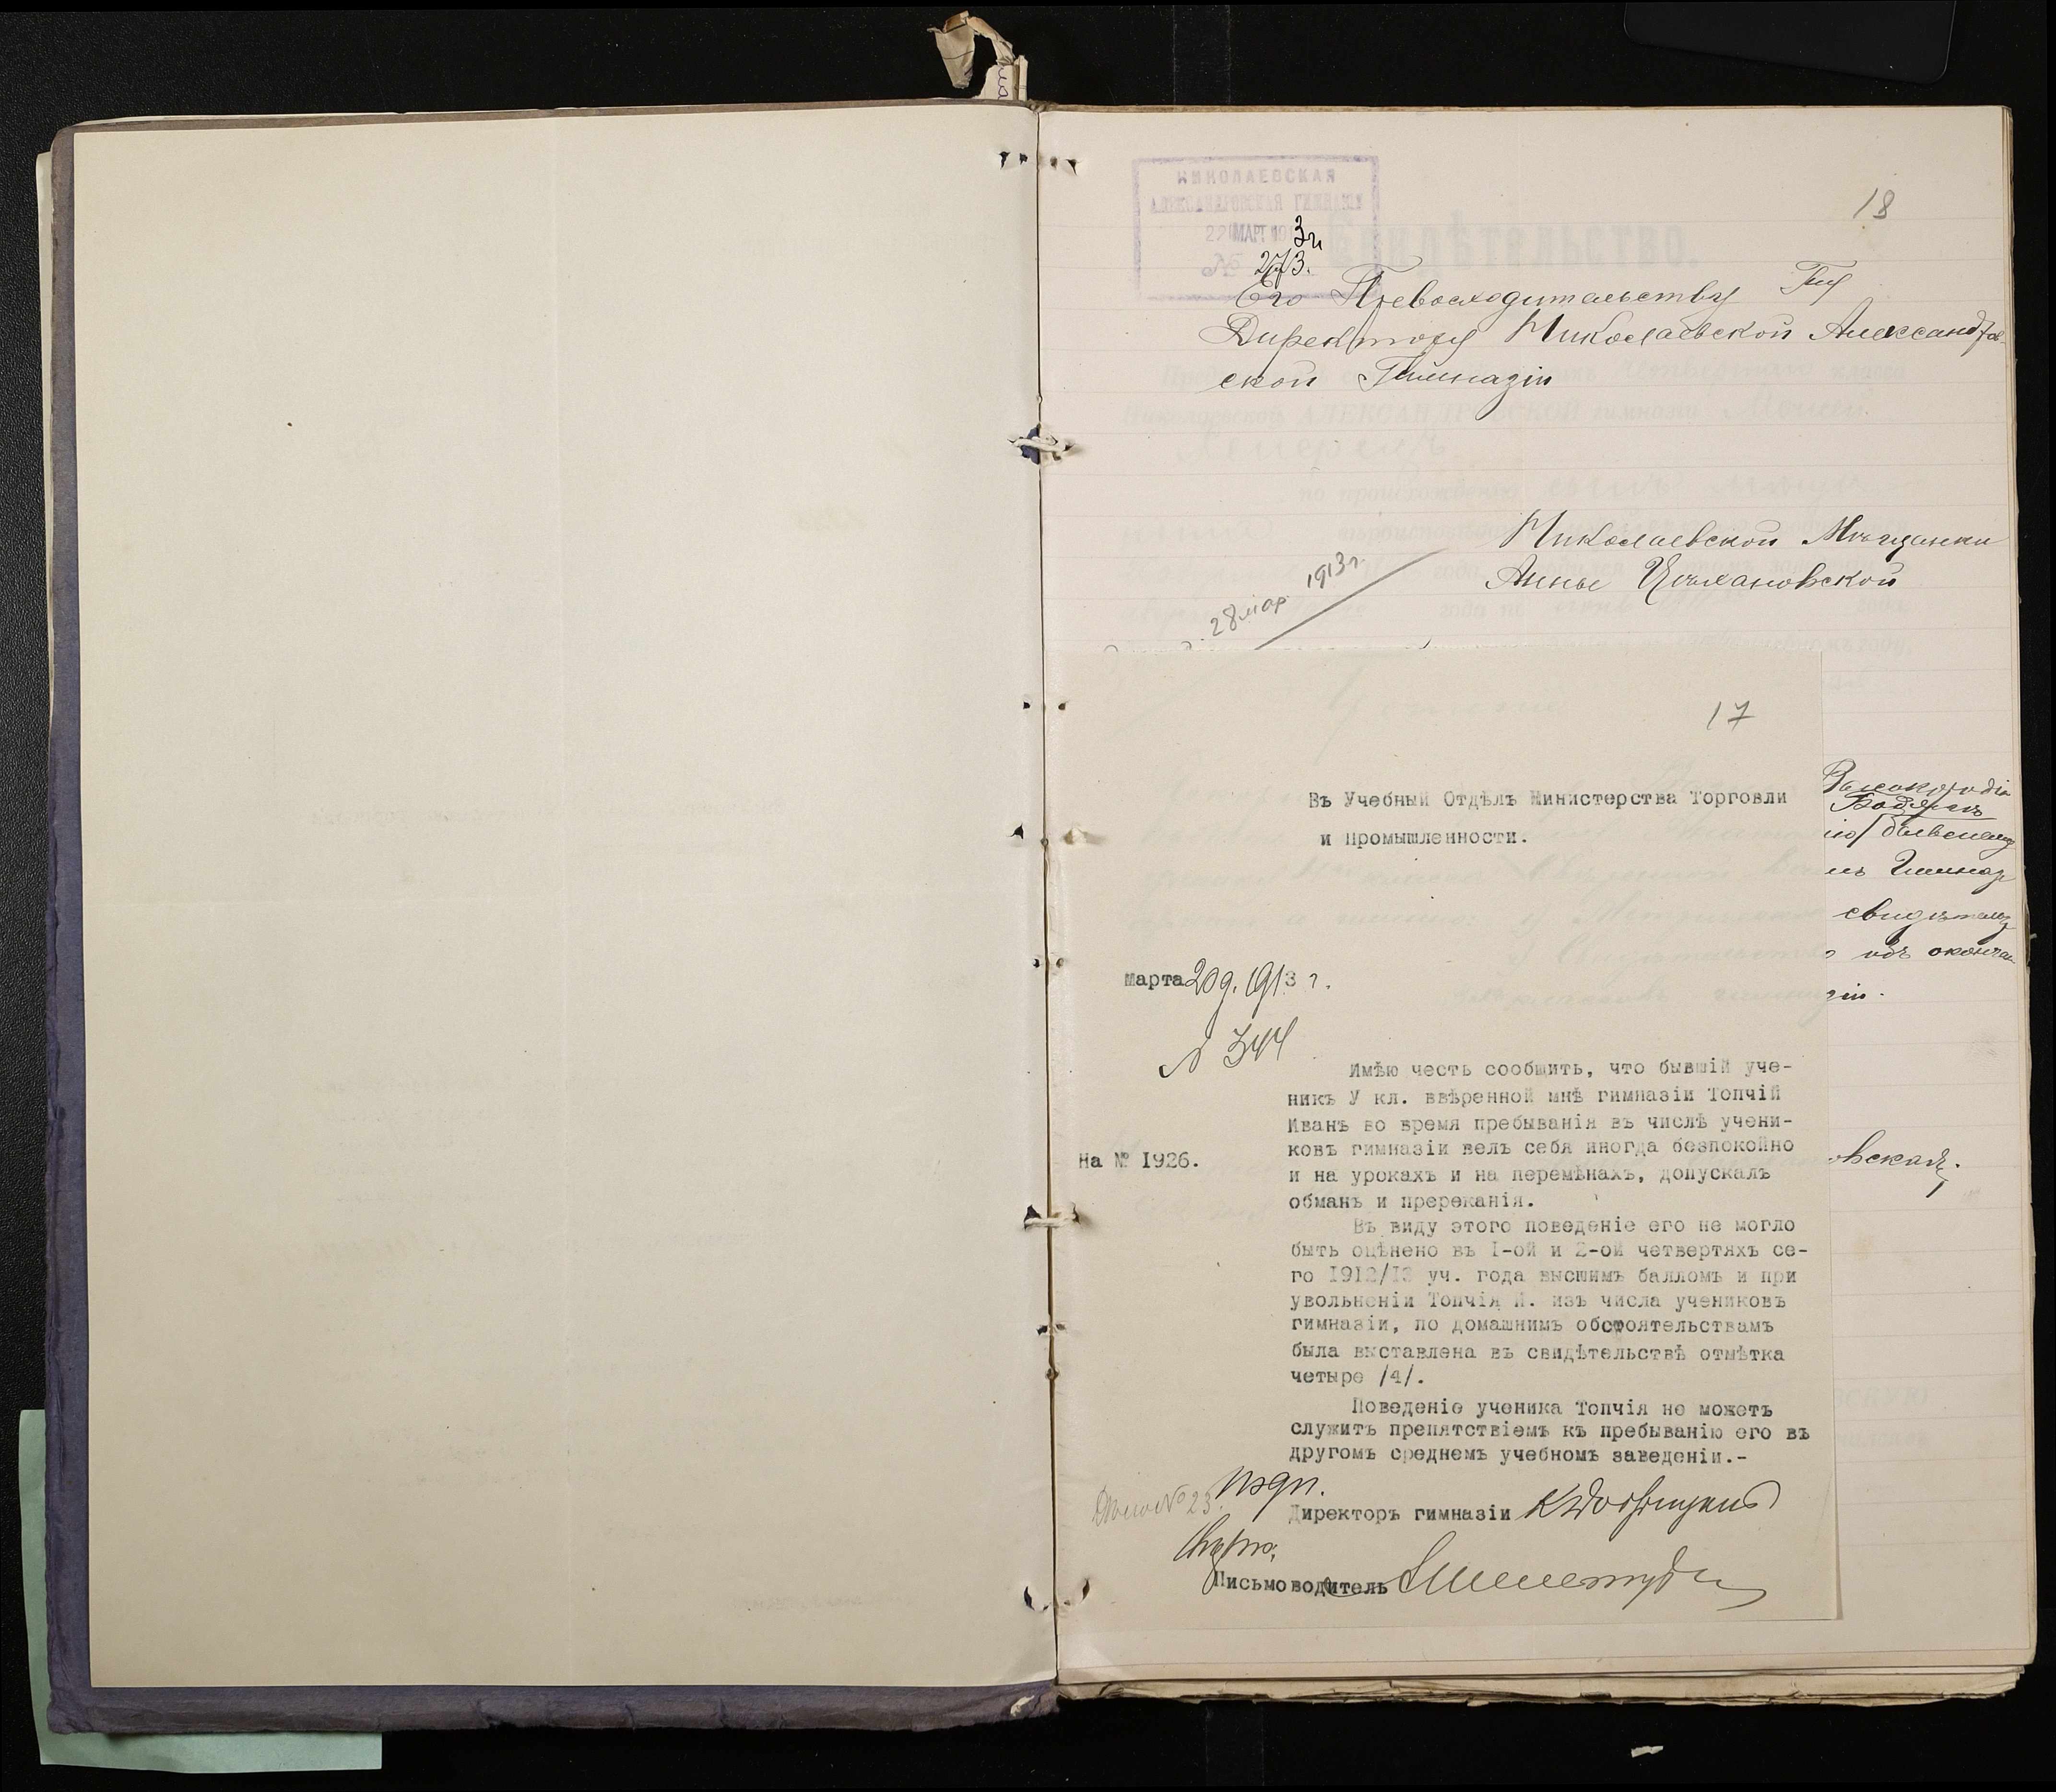 НИКОЛАЕВСКАЯ
АЛЕКСАНДРОВСКАЯ ГИМНАЗІЯ
22 МАРТ 1913 г.
№ 273.
18
Его Превосходительству Гну
Директору Николаевской Александров-
ской Гимназіи
Николаевской Мѣщанки
Анны Цѣхановской
28 мар. 1913 г.
17
Въ Учебный Отдѣлъ Министерства Торговли
и Промышленности.
Высокородіе
свидѣтел
объ окончан
зіи.
овская.
Марта 20 д. 1913 г.
№ 344
На № 1926.
Имѣю честь сообщить, что бывшій уче-
никъ У кл. ввѣренной мнѣ гимназіи Топчій
Иванъ во время пребыванія въ числѣ учени-
ковъ гимназіи велъ себя иногда безпокойно
и на урокахъ и на перемѣнахъ, допускалъ
обманъ и пререканія.
Въ виду этого поведеніе его не могло
быть оцѣнено въ I-ой и 2-ой четвертяхъ се-
го 1912/13 уч. года высшимъ балломъ и при
увольненіи Топчія И. изъ числа учениковъ
гимназіи, по домашнимъ обстоятельствамъ
была выставлена въ свидѣтельствѣ отмѣтка
четыре /4/.
Поведеніе ученика Топчія не можетъ
служить препятствіемъ къ пребыванію его въ
другомъ среднемъ учебномъ заведеніи.-
подп.
Дѣло № 23.
Директоръ гимназіи
Вѣрно:
Письмоводитель